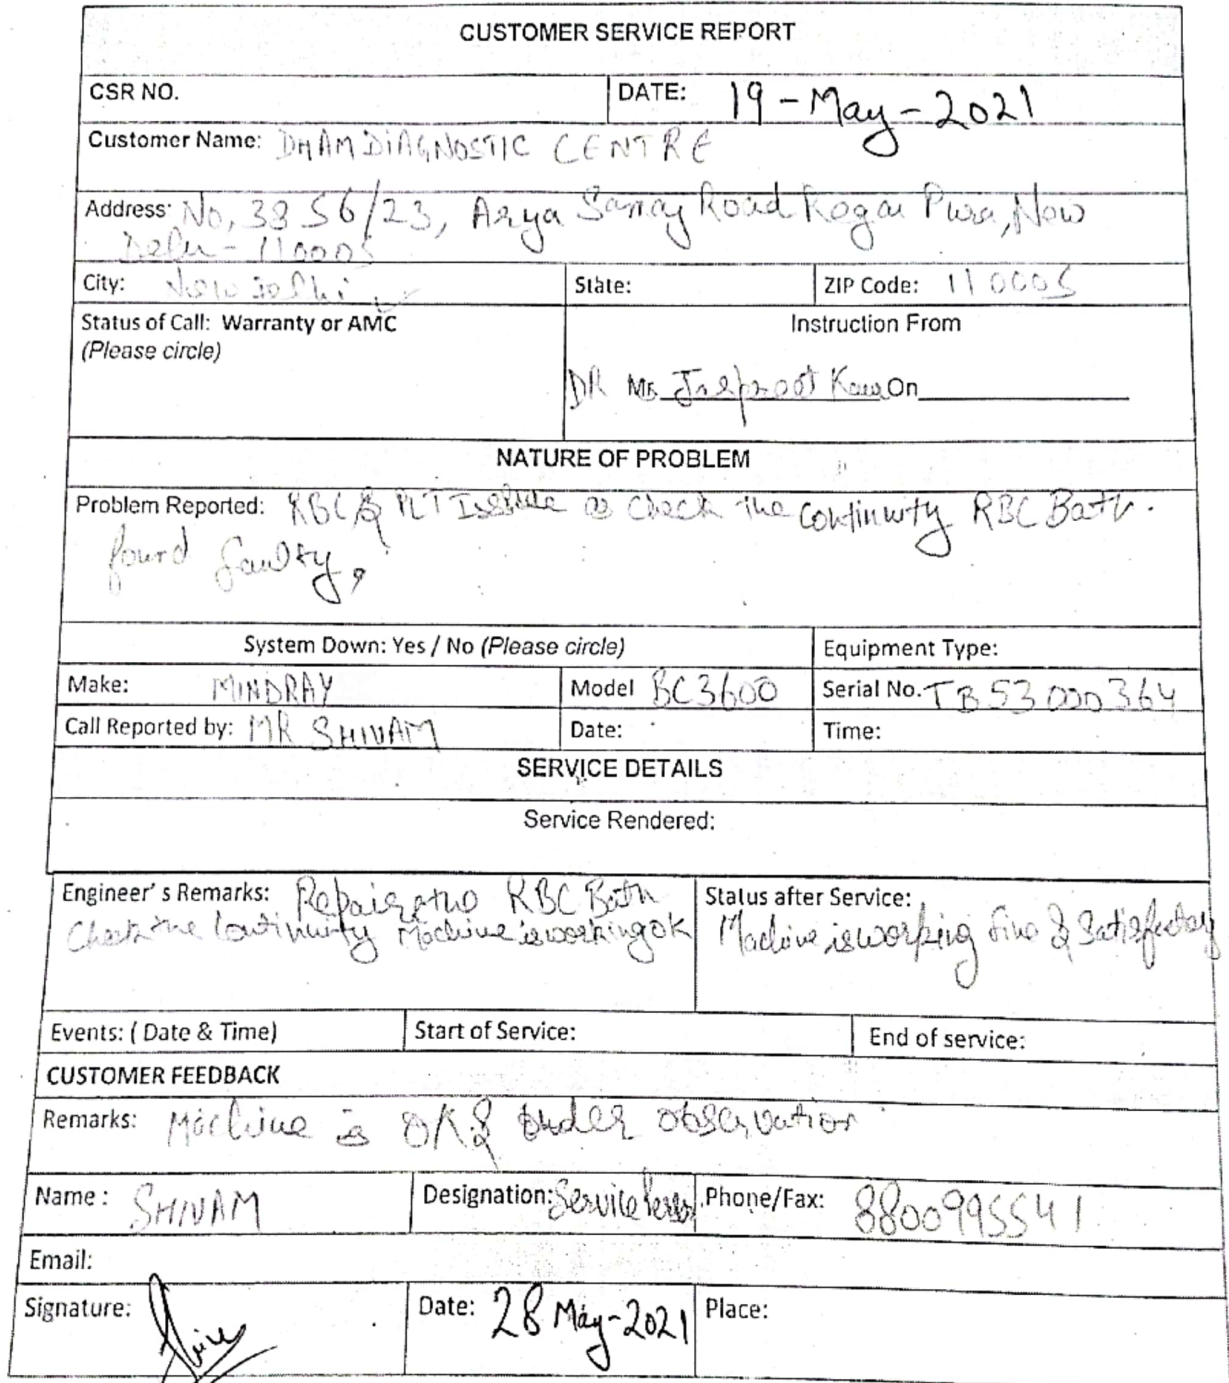 CUSTOMER SERVICE REPORT
CSR NO. DATE: 19-May-2021
Customer Name: DHAM DIAGNOSTIC CENTRE
Address: No, 3856/23, Arya Samaj Road Rogar Pura, New
Delhi - 110005
City: New Delhi State: ZIP Code: 110005
Status of Call: Warranty or AMC Instruction From
(Please circle)
DR Mr. Kaur On
NATURE OF PROBLEM
Problem Reported: RBC & PLT Issue Check the continuity RBC Bath.
found faulty,
System Down: Yes / No (Please circle) Equipment Type:
Make: MINDRAY Model BC3600 Serial No. TB53000364
Call Reported by: MR SHIVAM Date: Time:
SERVICE DETAILS
Service Rendered:
Engineer's Remarks: Repair the RBC Bath Status after Service:
Check the Continuity Machine is working ok Machine is working fine & Satisfactory
Events: ( Date & Time) Start of Service: End of service:
CUSTOMER FEEDBACK
Remarks: Machine is OK & under observation
Name : SHIVAM Designation: Service Phone/Fax: 8800995541
Email:
Signature: Date: 28 May-2021 Place: